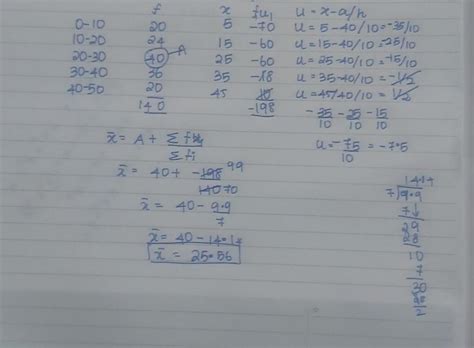 f x fu₁ u = x-a/h
0-10 20 5 -70 u = 5-40/10 = -35/10
10-20 24 15 -60 u = 15-40/10 = -25/10
20-30 40 A 25 -60 u = 25-40/10 = -15/10
30-40 36 35 -18 u = 35-40/10 = -1/2
40-50 20 45 10 u = 45/40/10 = 1/2
140 -198 -35/10 -25/10 -15/10
x̄ = A + Σfu/Σfi u = -75/10 = -7.5
x̄ = 40 + -198 99/140 70
x̄ = 40 - 9.9/7
x̄ = 40 - 14.14
x̄ = 25.56
1414
7 9.9
7↓
29
28
10
7
30
28
2